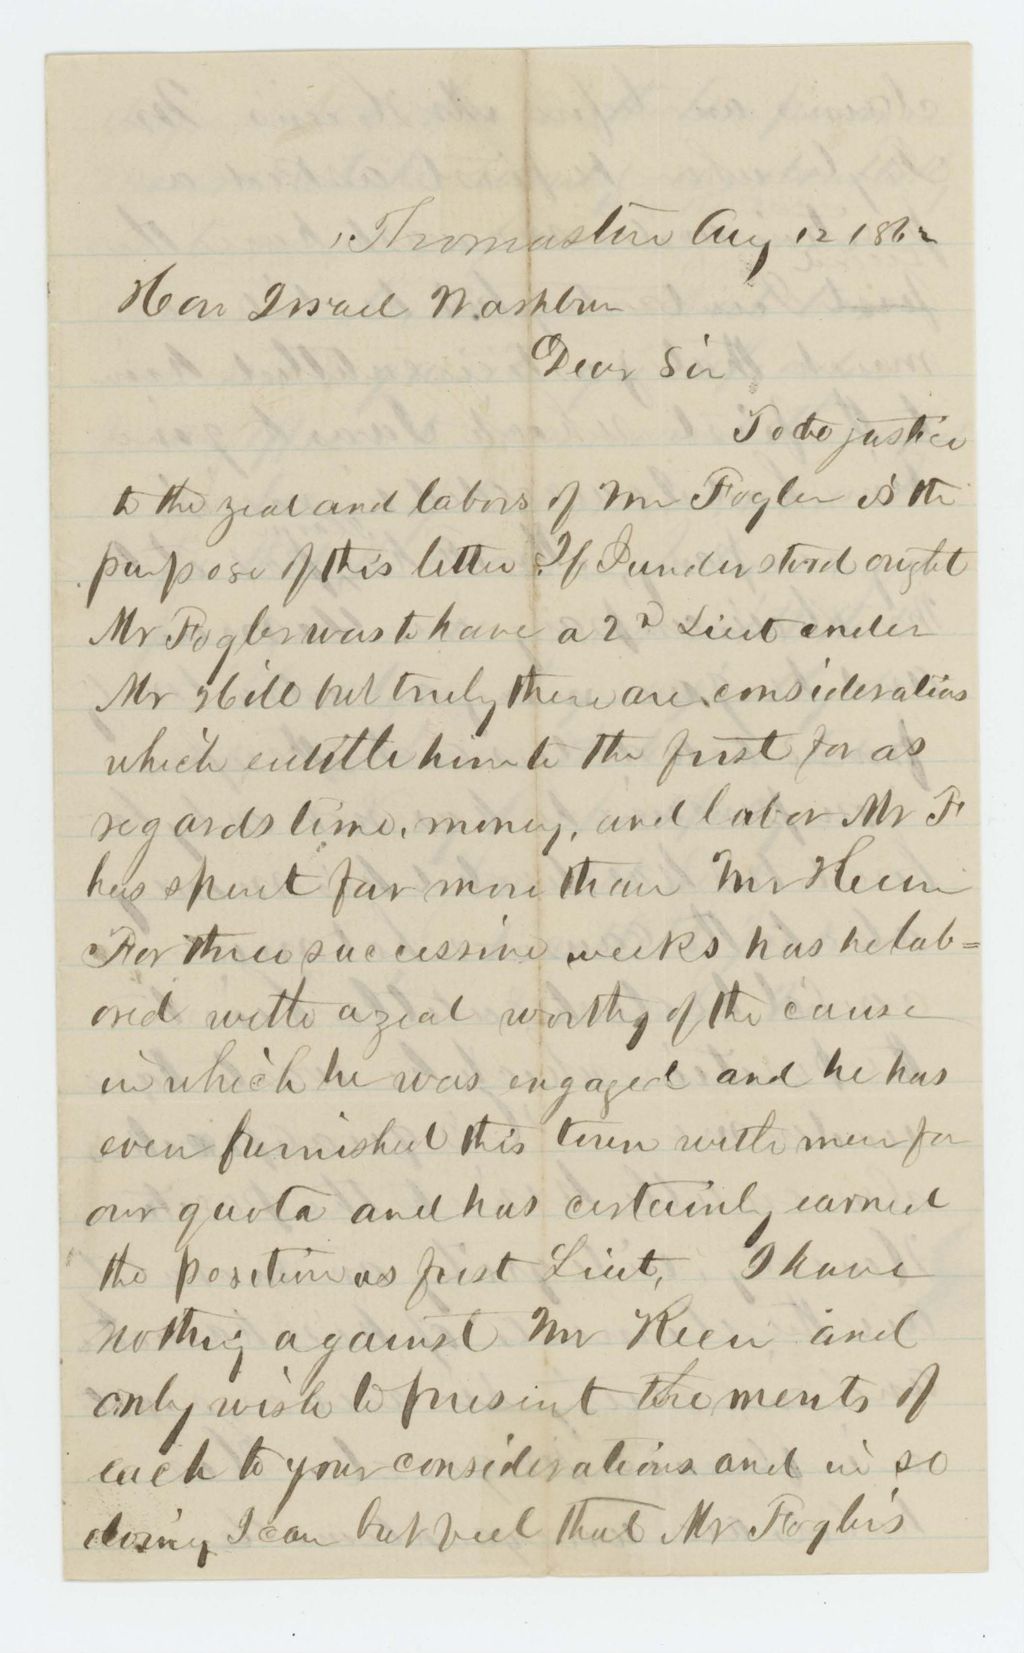 Thomaston Aug 12 1862
Hon Israel Washburn
Dear Sir
To do justice
to the zeal and labors of Mr Fogler is the
purpose of this letter. If I understood aright
Mr Fogler was to have a 2d Lieut under
Mr Hill but truly there are considerations
which entitle him to the first for as
regards time, money, and labor Mr F
has spent far more than Mr Keen
For three successive weeks has he lab=
ored with a zeal worthy of the cause
in which he was engaged and he has
even furnished this town with men for
our quota and has certainly earned
the position as first Lieut, I have
nothing against Mr Keen and
only wish to present the merits of
each to your considerations and in so
doing I can but feel that Mr Fogler's